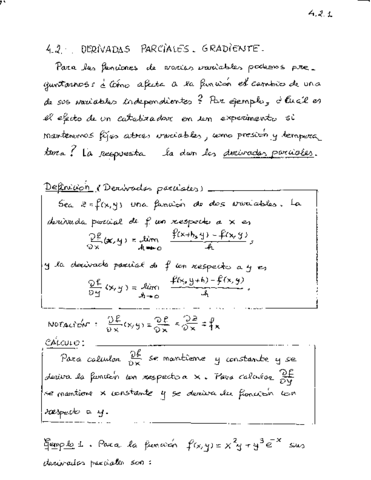 4.2.1
4.2. DERIVADAS PARCIALES. GRADIENTE.
Para las funciones de varias variables podemos pre-
guntarnos: ¿Cómo afecta a la función el cambio de una
de sus variables independientes? Por ejemplo, ¿Cuál es
el efecto de un catalizador en un experimento si
mantenemos fijas otras variables, como presión y tempera
tura? La respuesta la dan las derivadas parciales.
Definición (Derivadas parciales)
Sea z = f(x,y) una función de dos variables. La
derivada parcial de f con respecto a x es
∂f/∂x (x,y) = lim h→0 (f(x+h,y) - f(x,y))/h,
y la derivada parcial de f con respecto a y es
∂f/∂y (x,y) = lim h→0 (f(x,y+h) - f(x,y))/h.
NOTACIÓN: ∂f/∂x (x,y) = ∂f/∂x = ∂z/∂x = fx
CÁLCULO:
Para calcular ∂f/∂x se mantiene y constante y se
deriva la función con respecto a x. Para calcular ∂f/∂y
se mantiene x constante y se deriva la función con
respecto a y.
Ejemplo 1. Para la función f(x,y) = x²y + y³e⁻ˣ sus
derivadas parciales son: